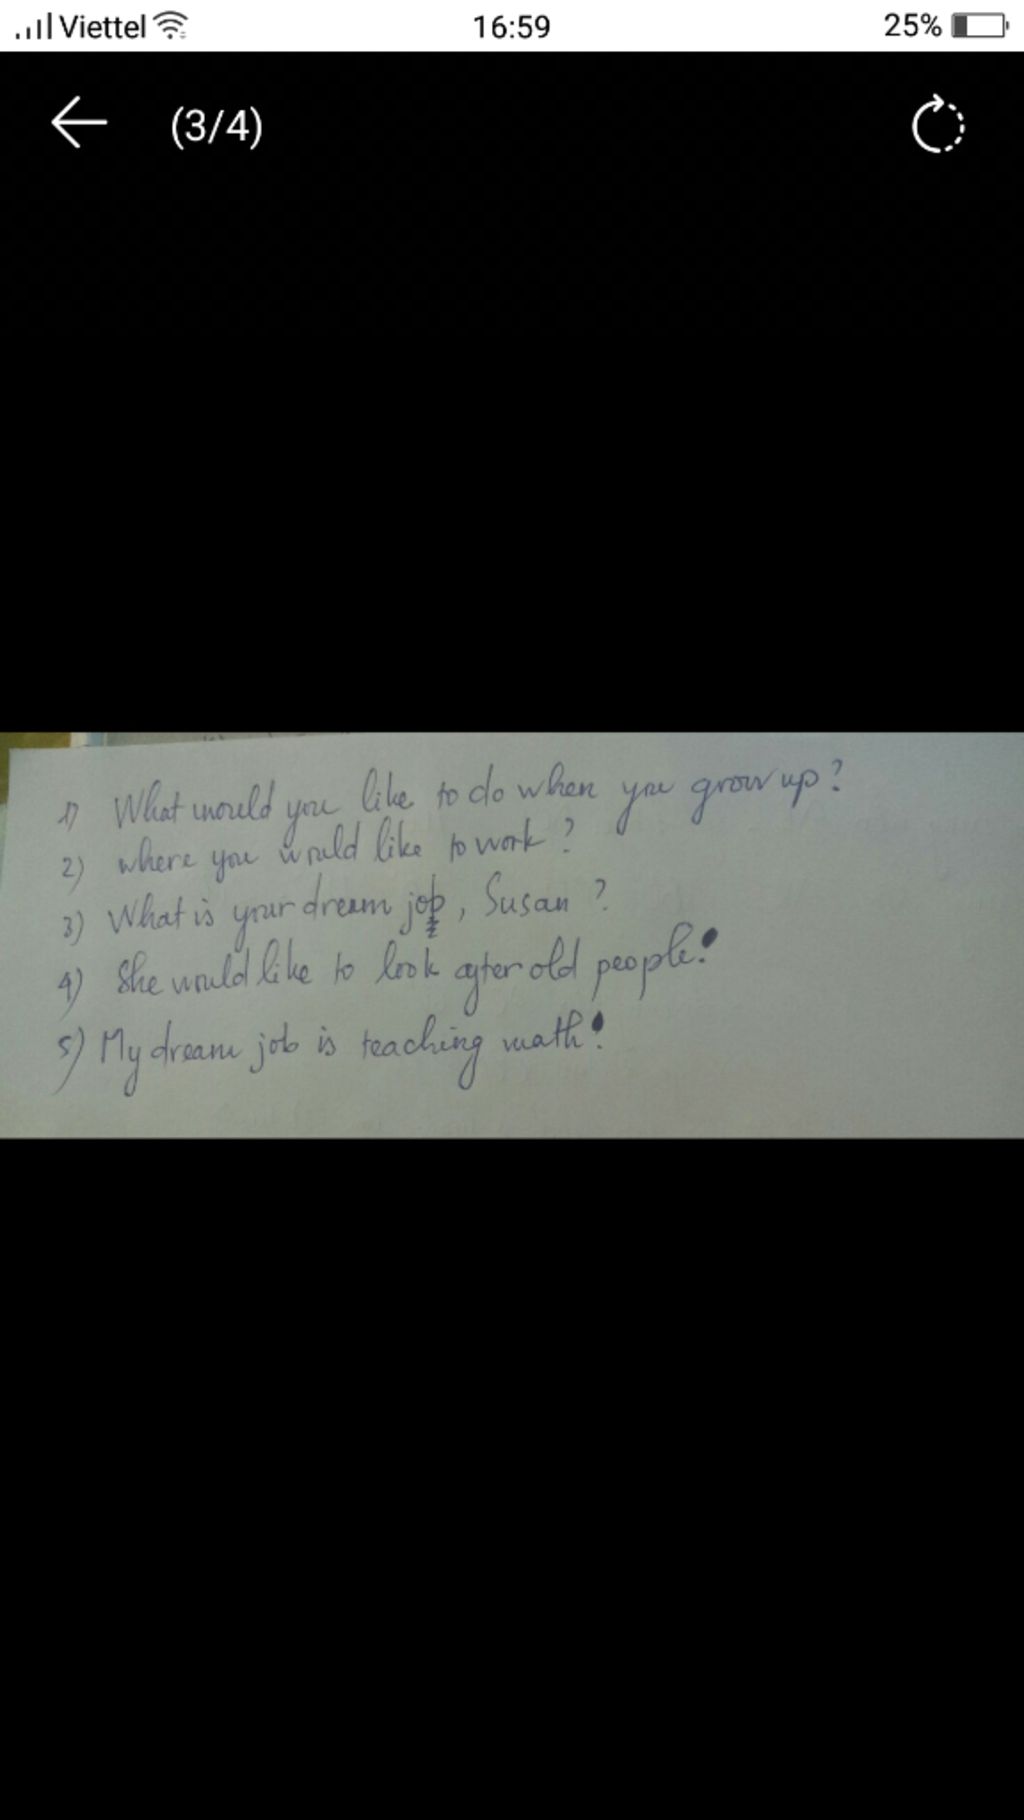 Viettel 16:59 25%
(3/4)
1) What would you like to do when you grow up?
2) where you would like to work?
3) What is your dream job, Susan?
4) She would like to look after old people!
5) My dream job is teaching math!